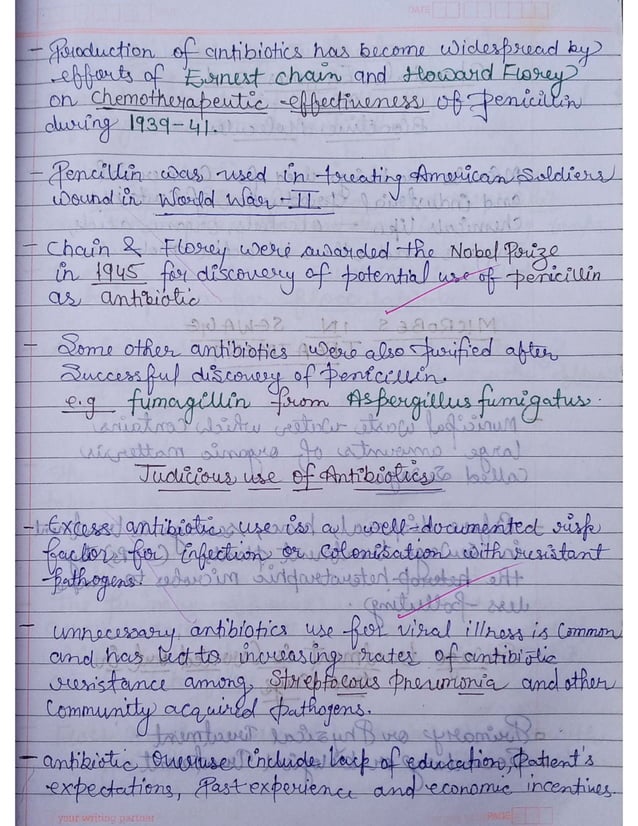 DATE
- Production of antibiotics has become widespread by
efforts of Ernest chain and Howard Florey
on chemotherapeutic effectiveness of penicillin
during 1939-41.
- Pencillin was used in treating American Soldiers
wound in World War-II
- Chain & Florey were awarded the Nobel Prize
in 1945 for discovery of potential use of penicillin
as antibiotic
- Some other antibiotics were also purified after
Successful discovery of penicillin.
e.g fumagillin from Aspergillus fumigatus.
Judicious use of Antibiotics
- Excess antibiotic use is a well-documented risk
factor for infection or colonisation with resistant
pathogens
- unnecessary antibiotics use for viral illness is common
and has led to increasing rates of antibiotic
resistance among Streptocous pneumonia and other
Community acquired pathogens.
- antibiotic overuse include lack of education, Patient's
expectations, Past experience and economic incentives.
your writing partner
PAGE